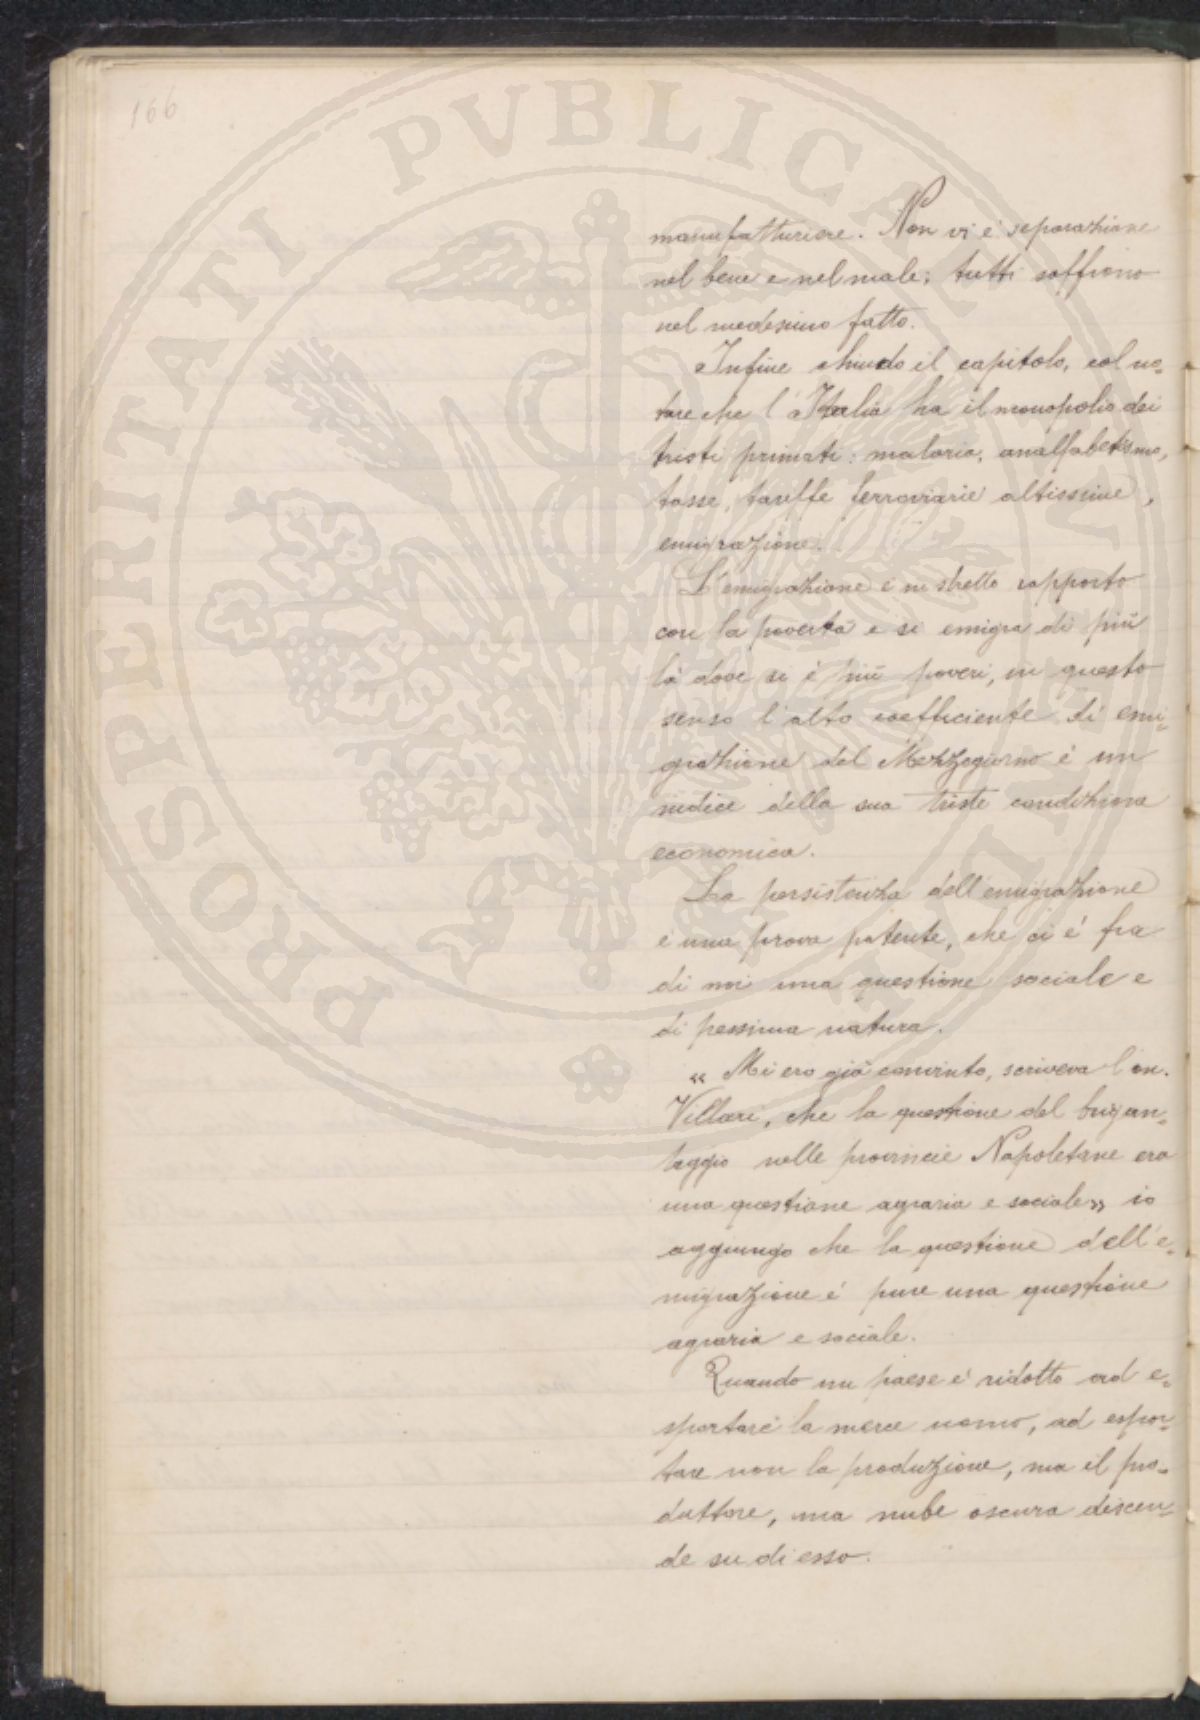 166
PROSPERITATI PVBLICAE
manufatturiere. Non vi è separazione
nel bene e nel male; tutti soffrono
nel medesimo fatto.
Infine chiudo il capitolo, col no-
tare che l'Italia ha il monopolio dei
tristi primati: malaria, analfabetismo,
tasse, tariffe ferroviarie altissime,
emigrazione.
L'emigrazione è in stretto rapporto
con la povertà e si emigra di più
là dove si è più poveri, in questo
senso l'alto coefficiente di emi-
grazione del Mezzogiorno è un
indice della sua triste condizione
economica.
La persistenza dell'emigrazione
è una prova patente, che ci è fra
di noi una questione sociale e
di pessima natura.
" Mi ero già convinto, scriveva l'on.
Villari, che la questione del brigan-
taggio nelle provincie Napoletane era
una questione agraria e sociale" io
aggiungo che la questione dell'e-
migrazione è pure una questione
agraria e sociale.
Quando un paese è ridotto ad e-
sportare la merce uomo, ad espor-
tare non la produzione, ma il pro-
duttore, una nube oscura discen-
de su di esso.